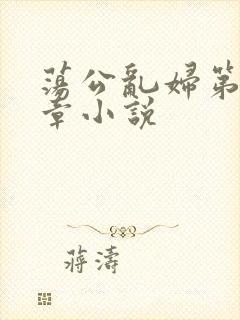 蕩公亂婦第
章小說
蔣濤